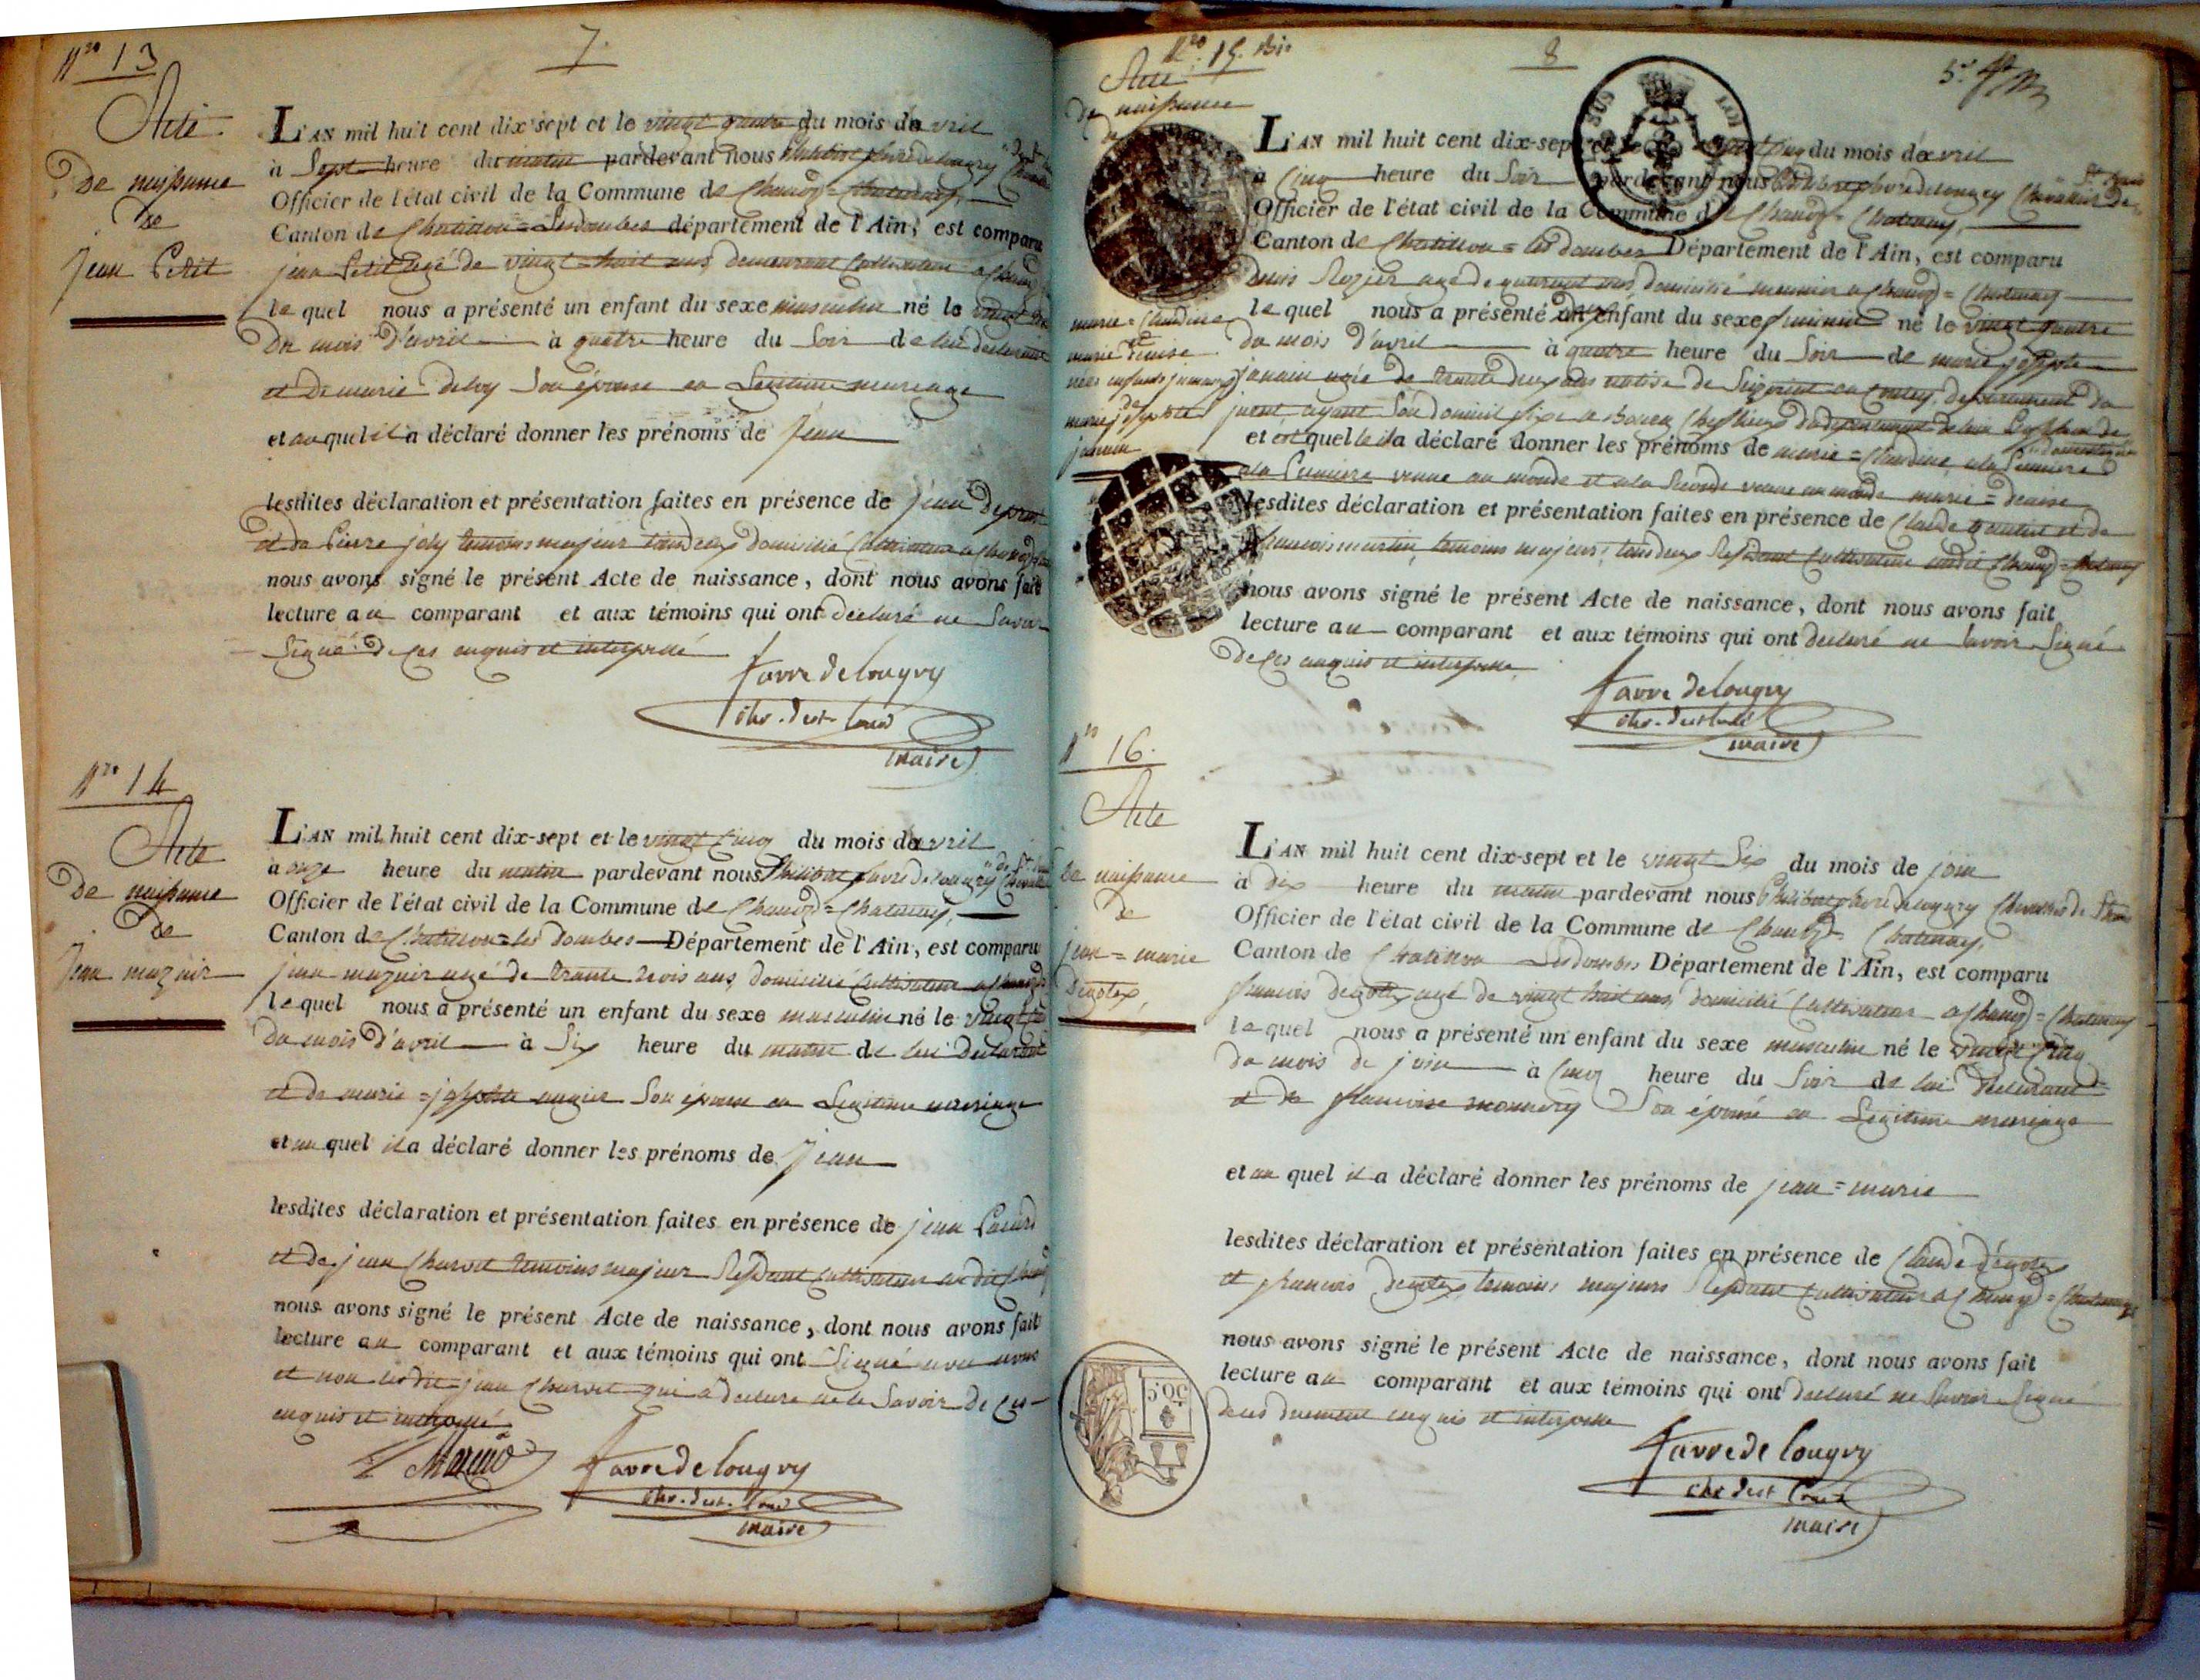 Nro 13
7
Acte
De naissance
De
Jean Petit
L'AN mil huit cent dix sept et le vingt quatre du mois d'avril
à Sept heure du matin pardevant nous Philibert favre de longry
Officier de l'état civil de la Commune de Chanoz=Chatenay,
Canton de Chatillon=Lesdombes département de l'Ain, est comparu
jean Petit agé de vingt=huit ans demeurant Cultivateur a Chanoz
lequel nous a présenté un enfant du sexe masculin né le vingt
Du mois d'avril à quatre heure du Soir de lui declarant
et De marie Deloy Son épouse en Legitime mareage
et auquel il a déclaré donner les prénoms de Jean
lesdites déclaration et présentation faites en présence de jean
et de Pierre joly temoins majeur tous deux domicilié Cultivateur a
nous avons signé le présent Acte de naissance, dont nous avons fait
lecture au comparant et aux témoins qui ont declaré ne Savoir
Signé De ces enquis et interpellé
favre de longry
chr. de st. Loui
maire
Nro 14
Acte
De naissance
De
Jean mazuir
L'AN mil huit cent dix-sept et le vingt Cinq du mois d'avril
à onze heure du matin pardevant nous Philibert favre de longry
Officier de l'état civil de la Commune de Chanoz=Chatenay,
Canton de Chatillon=les Dombes Département de l'Ain, est comparu
jean mazuir agé de trante trois ans domicilié Cultivateur a
lequel nous a présenté un enfant du sexe masculin né le vingt
Du mois d'avril à Six heure du matin de lui Declarant
et De marie=josephte Son épouse en Legitime marriage
et au quel il a déclaré donner les prénoms de Jean
lesdites déclaration et présentation faites en présence de jean
et De jean Charvet temoins majeur Residant Cultivateur au dit
nous avons signé le présent Acte de naissance, dont nous avons fait
lecture au comparant et aux témoins qui ont Signé avec nous
et non ledit jean Charvet qui a declaré ne le Savoir De Ces
enquis et interpellé
favre de longry
chr. de st. Loui
maire
Nro 15. Bis
8
Acte
De naissance
de
marie=Claudine
marie denise
nées enfants jumeaux
de
marie josephte
janain
L'AN mil huit cent dix-sept et le vingt Cinq du mois d'avril
à Cinq heure du Soir pardevant nous Philibert favre de longry Chevalier de
Officier de l'état civil de la Commune de Chanoz=Chatenay,
Canton de Chatillon=les dombes Département de l'Ain, est comparu
Denis Rozier agé de quarante ans domicilié meunier a Chanoz=Chatenay
lequel nous a présenté deux enfant du sexe feminin né le vingt quatre
du mois d'avril à quatre heure du Soir de marie josephte
janain agée de trante deux ans native de département du
jura ayant Son domicil fixé a Bourg
et quelle il a déclaré donner les prénoms de marie=Claudine a la Premiere
a la Premiere venue au monde et a la Seconde venue au monde marie=denise
lesdites déclaration et présentation faites en présence de Claude et de
francois martin temoins majeur, tous deux Residant Cultivateur audit Chanoz=Chatenay
nous avons signé le présent Acte de naissance, dont nous avons fait
lecture au comparant et aux témoins qui ont declaré ne Savoir Signé
De Ces enquis et interpelle
favre de longry
chr. de st Loui
maire
Nro 16.
Acte
De naissance
De
jean=marie
Degotex
L'AN mil huit cent dix-sept et le vingt Six du mois de join
à dix heure du matin pardevant nous Philibert favre de longry Chevalier de
Officier de l'état civil de la Commune de Chanoz=Chatenay,
Canton de Chatillon Lesdombes Département de l'Ain, est comparu
francois degotex agé de vingt huit ans domicilié Cultivateur a Chanoz=Chatenay
lequel nous a présenté un enfant du sexe masculin né le vingt Cinq
du mois de join à Cinq heure du Soir de lui declarant
et de francoise monnery Son épouse en Legitime marriage
et au quel il a déclaré donner les prénoms de jean=marie
lesdites déclaration et présentation faites en présence de Claude degotex
et francois degotex temoins majeurs Residant Cultivateur a Chanoz=Chatenay
nous avons signé le présent Acte de naissance, dont nous avons fait
lecture au comparant et aux témoins qui ont declaré ne Savoir Signé
de ces duement enquis et interpelle
50.C
favre de longry
chr de st Loui
maire